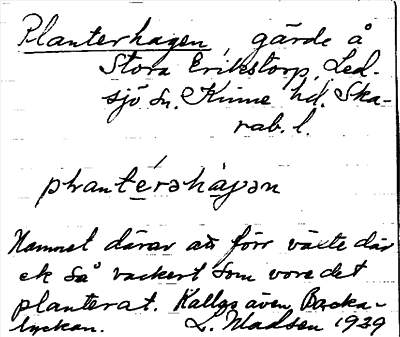 Planterhagen, gärde å
Stora Erikstorp, Led-
sjö sn. Kinne hd. Ska-
rab. l.
plrantérəhàgən
Namnet därav att förr växte där
ek så vackert som vore det
planterat. Kallas även Backa-
lyckan. L. Madsen 1939